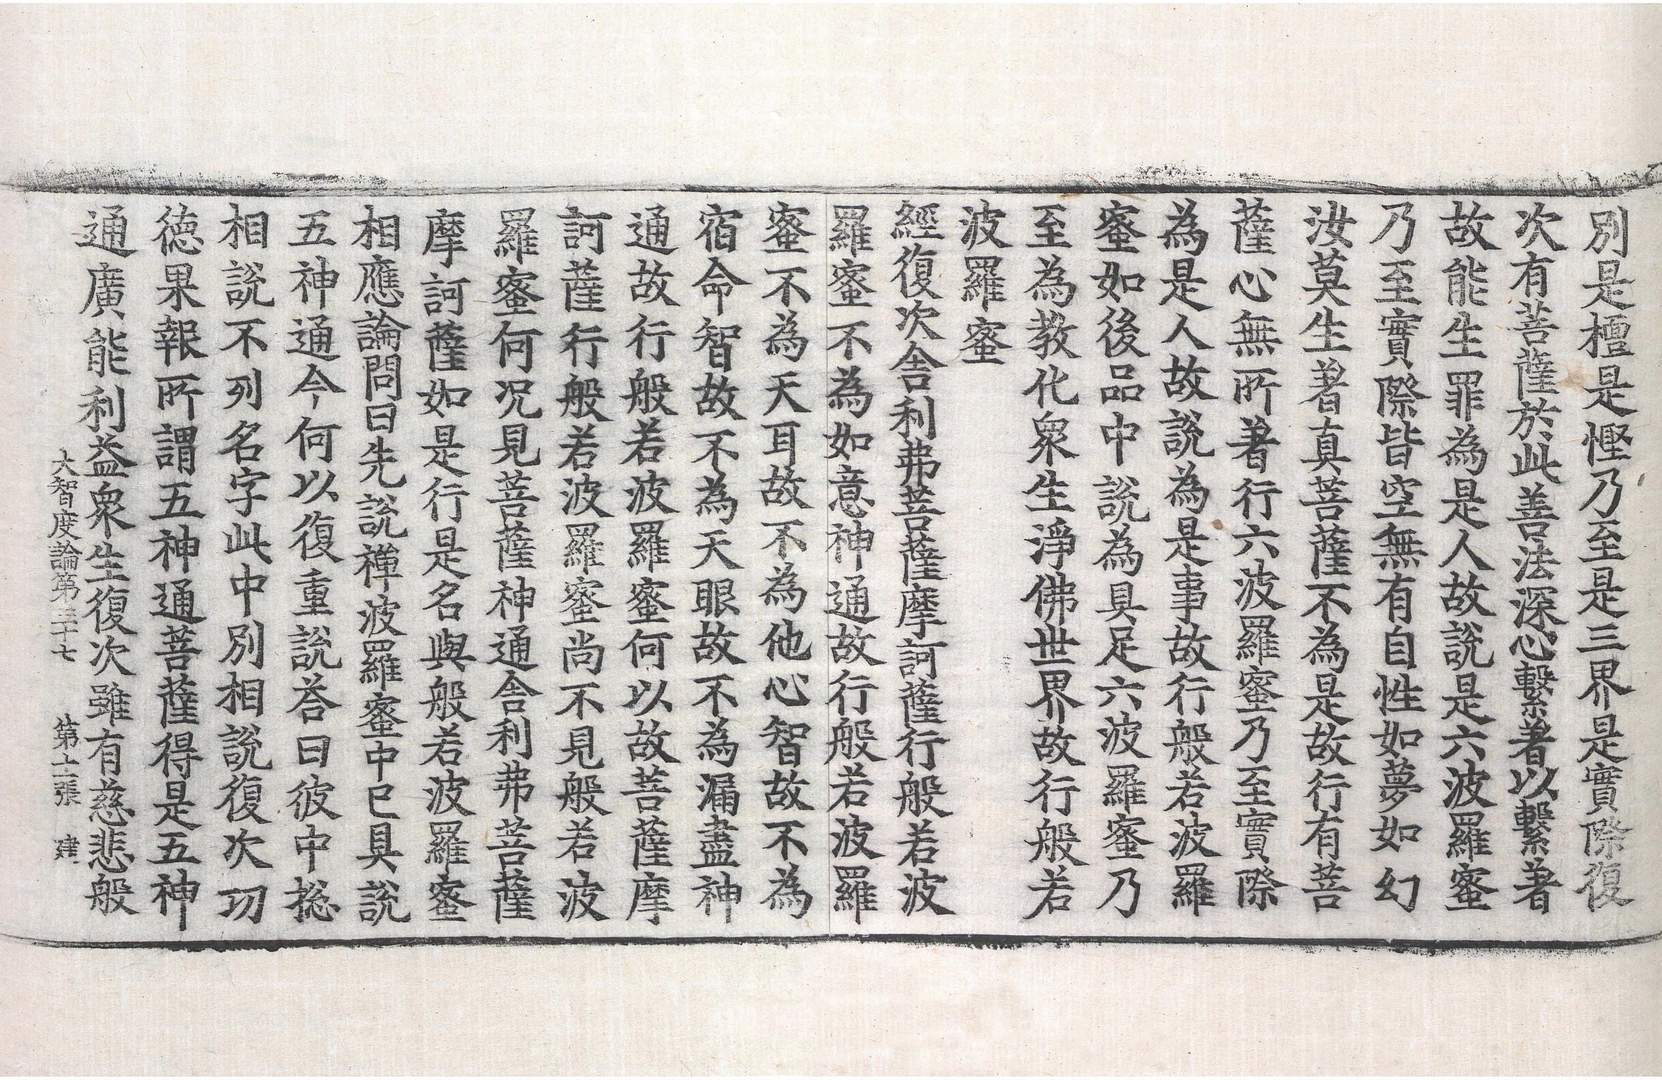 別是檀是慳乃至是三界是實際復
次有菩薩於此善法深心繫著以繫著
故能生罪為是人故說是六波羅蜜
乃至實際皆空無有自性如夢如幻
汝莫生著真菩薩不為是故行有菩
薩心無所著行六波羅蜜乃至實際
為是人故說為是事故行般若波羅
蜜如後品中說為具足六波羅蜜乃
至為教化衆生淨佛世界故行般若
波羅蜜
經復次舍利弗菩薩摩訶薩行般若波
羅蜜不為如意神通故行般若波羅
蜜不為天耳故不為他心智故不為
宿命智故不為天眼故不為漏盡神
通故行般若波羅蜜何以故菩薩摩
訶薩行般若波羅蜜尚不見般若波
羅蜜何况見菩薩神通舍利弗菩薩
摩訶薩如是行是名與般若波羅蜜
相應論問曰先說禪波羅蜜中已具說
五神通今何以復重說荅曰彼中捴
相說不列名字此中別相說復次功
德果報所謂五神通菩薩得是五神
通廣能利益衆生復次雖有慈悲般
大智度論第三十七 第十張 建